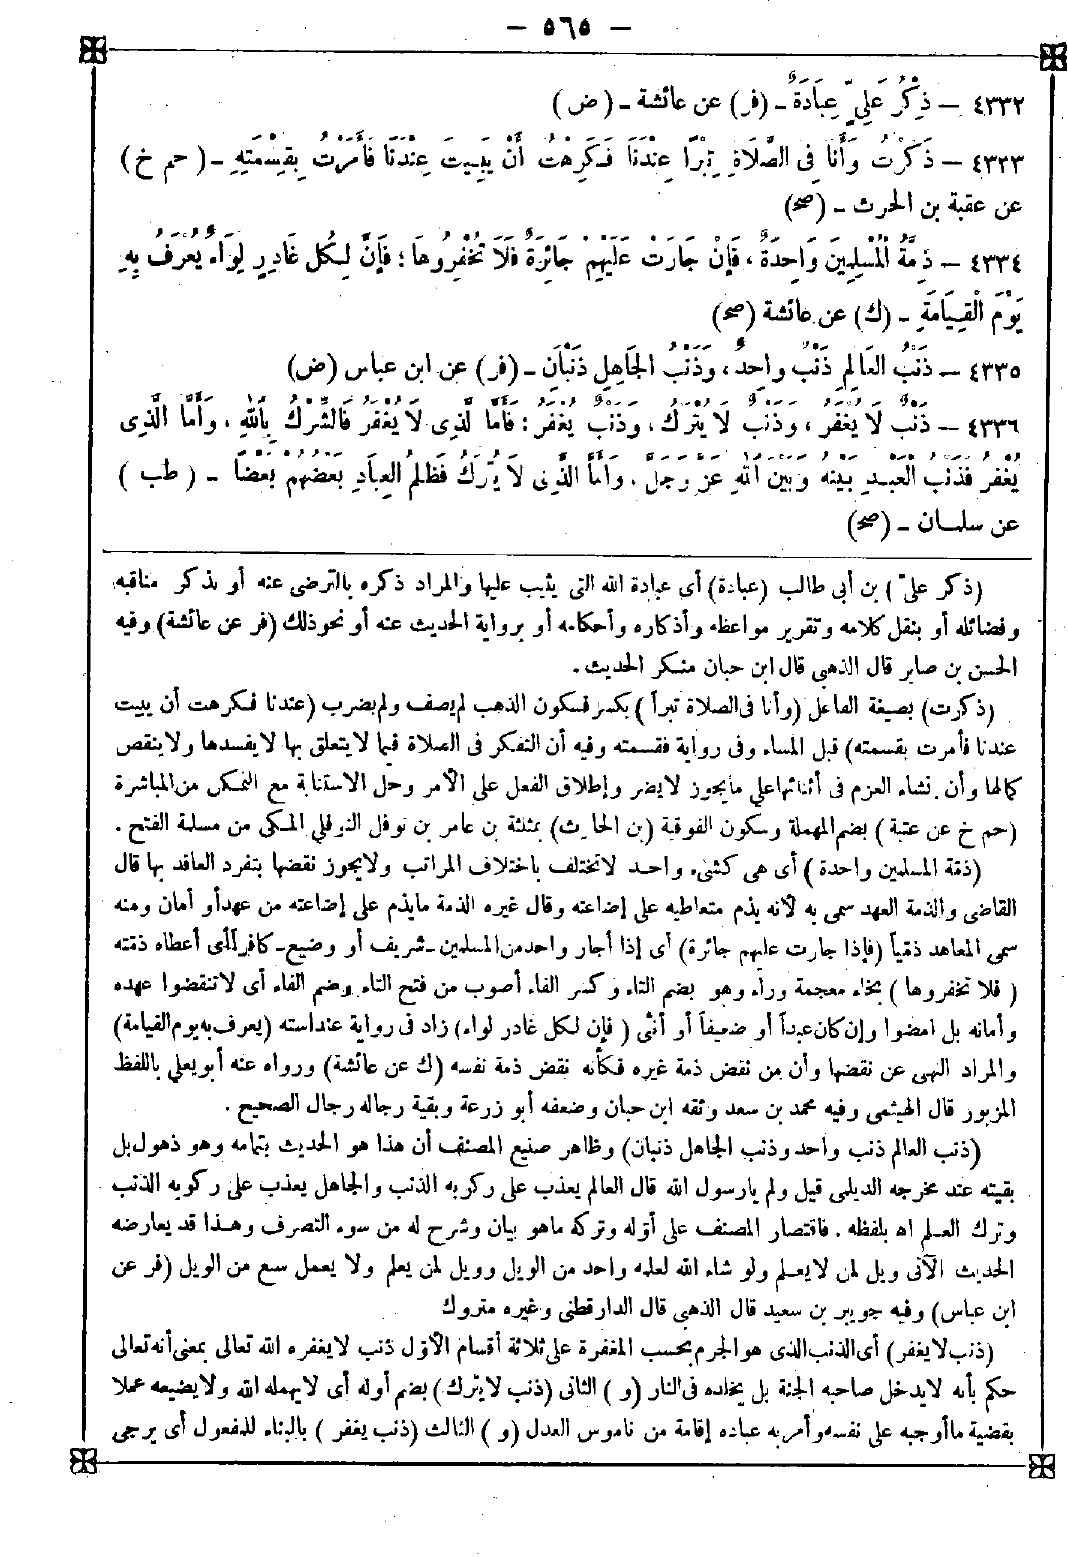 — ٥٦٥ —
٤٣٣٢ — ذِكْرُ عَلِيٍّ عِبَادَةٌ ـ (فر) عن عائشة ـ (ض)
٤٣٣٣ — ذَكَرْتُ وَأَنَا فِى الصَّلَاةِ تِبْرًا عِنْدَنَا فَكَرِهْتُ أَنْ يَبِيتَ عِنْدَنَا فَأَمَرْتُ بِقِسْمَتِهِ ـ (حم خ)
عن عقبة بن الحرث ـ (صح)
٤٣٣٤ — ذِمَّةُ الْمُسْلِمِينَ وَاحِدَةٌ ، فَإِنْ جَارَتْ عَلَيْهِمْ جَائِرَةٌ فَلَا تُخْفِرُوهَا ؛ فَإِنَّ لِكُلِّ غَادِرٍ لِوَاءً يُعْرَفُ بِهِ
يَوْمَ الْقِيَامَةِ ـ (ك) عن عائشة (صح)
٤٣٣٥ — ذَنْبُ العَالِمِ ذَنْبٌ وَاحِدٌ ، وَذَنْبُ الجَاهِلِ ذَنْبَانِ ـ (فر) عن ابن عباس (ض)
٤٣٣٦ — ذَنْبٌ لَا يُغْفَرُ ، وَذَنْبٌ لَا يُتْرَكُ ، وَذَنْبٌ يُغْفَرُ : فَأَمَّا لَّذِى لَا يُغْفَرُ فَالشِّرْكُ بِاللهِ ، وَأَمَّا الَّذِى
يُغْفَرُ فَذَنْبُ العَبْدِ بَيْنَهُ وَبَيْنَ اللهِ عَزَّ وَجَلَّ ، وَأَمَّا الَّذِى لَا يُتْرَكُ فَظُلْمُ العِبَادِ بَعْضُهُمْ بَعْضًا ـ (طب)
عن سلمان ـ (صح)
(ذكر علىّ) بن أبى طالب (عبادة) أى عبادة الله التى يثيب عليها والمراد ذكره بالترضى عنه أو بذكر مناقبه
وفضائله أو بنقل كلامه وتقرير مواعظه وأذكاره وأحكامه أو برواية الحديث عنه أو نحو ذلك (فر عن عائشة) وفيه
الحسن بن صابر قال الذهبى قال ابن حبان منكر الحديث .
(ذكرت) بصيغة الفاعل (وأنا فى الصلاة تبراً) بكسر فسكون الذهب لم يصف ولم يضرب (عندنا فكرهت أن يبيت
عندنا فأمرت بقسمته) قبل المساء وفى رواية فقسمته وفيه أن التفكر فى الصلاة فيما لا يتعلق بها لا يفسدها ولا ينقص
كمالها وأن إنشاء العزم فى أثنائها على ما يجوز لا يضر وإطلاق الفعل على الأمر وحل الاستنابة مع التمكن من المباشرة
(حم خ عن عتبة) بضم المهملة وسكون الفوقية (بن الحارث) بمثلثة بن عامر بن نوفل النوفلى المكى من مسلمة الفتح .
(ذمّة المسلمين واحدة) أى هى كشىء واحد لا تختلف باختلاف المراتب ولا يجوز نقضها بتفرد العاقد بها قال
القاضى والذمة العهد سمى به لأنه يذم متعاطيه على إضاعته وقال غيره الذمة ما يذم على إضاعته من عهد أو أمان ومنه
سمى المعاهد ذمّياً (فإذا جارت عليهم جائرة) أى إذا أجار واحد من المسلمين ـ شريف أو وضيع ـ كافراً أى أعطاه ذمّته
(فلا تخفروها) بخاء معجمة وراء وهو بضم التاء وكسر الفاء أصوب من فتح التاء وضم الفاء أى لا تنقضوا عهده
وأمانه بل امضوا وإن كان عبداً أو ضعيفاً أو أنثى (فإن لكل غادر لواء) زاد فى رواية عند استه (يعرف به يوم القيامة)
والمراد النهى عن نقضها وأن من نقض ذمة غيره فكأنه نقض ذمة نفسه (ك عن عائشة) ورواه عنه أبو يعلى باللفظ
المزبور قال الهيثمى وفيه محمد بن سعد وثقه ابن حبان وضعفه أبو زرعة وبقية رجاله رجال الصحيح .
(ذنب العالم ذنب واحد وذنب الجاهل ذنبان) وظاهر صنيع المصنف أن هذا هو الحديث بتمامه وهو ذهول بل
بقيته عند مخرجه الديلمى قيل ولم يارسول الله قال العالم يعذب على ركوبه الذنب والجاهل يعذب على ركوبه الذنب
وترك العلم اه بلفظه . فاقتصار المصنف على أوّله وتركه ماهو بيان وشرح له من سوء التصرف وهذا قد يعارضه
الحديث الآتى ويل لمن لا يعلم ولو شاء الله لعلمه واحد من الويل وويل لمن يعلم ولا يعمل سبع من الويل (فر عن
ابن عباس) وفيه جويبر بن سعيد قال الذهبى قال الدارقطنى وغيره متروك
(ذنب لا يغفر) أى الذنب الذى هو الجرم بحسب المغفرة على ثلاثة أقسام الأوّل ذنب لا يغفره الله تعالى بمعنى أنه تعالى
حكم بأنه لا يدخل صاحبه الجنة بل يخلده فى النار (و) الثانى (ذنب لا يترك) بضم أوله أى لا يهمله الله ولا يضيعه عملا
بقضية ما أوجبه على نفسه وأمر به عباده إقامة من ناموس العدل (و) الثالث (ذنب يغفر) بالبناء للمفعول أى يرجى